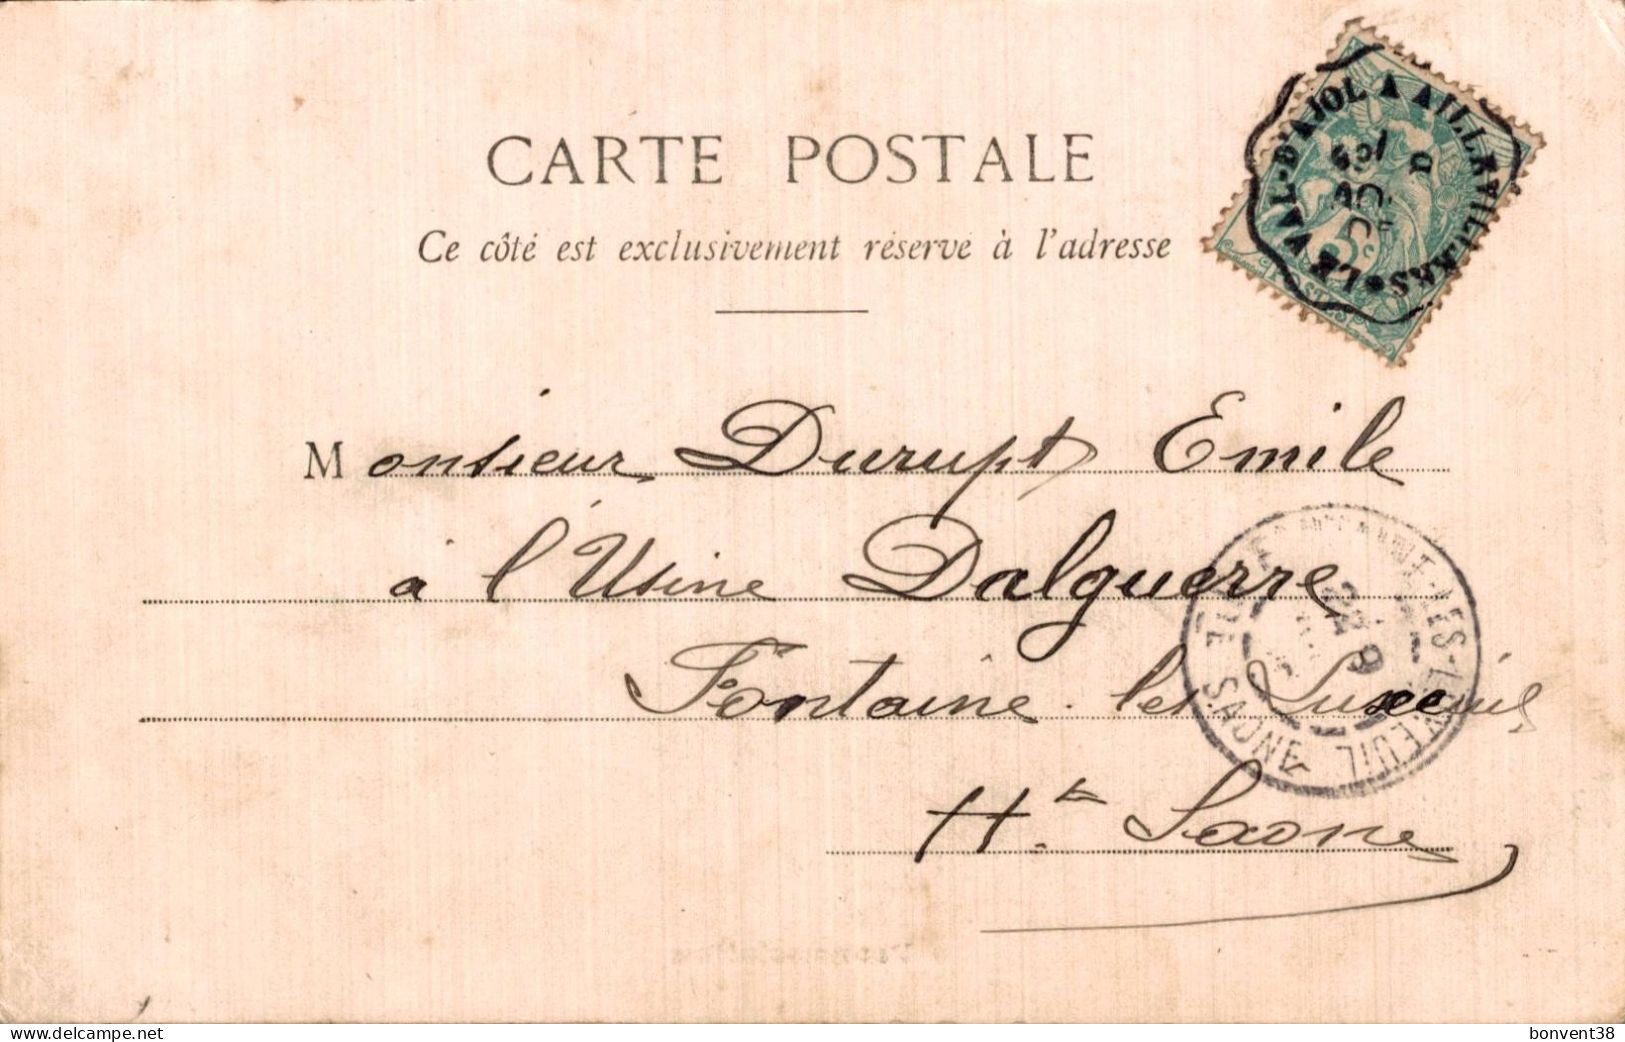 CARTE POSTALE
Ce côté est exclusivement réservé à l'adresse
LE VAL-D'AJOL A AILLEVILLERS
5c
POSTES
Monsieur Durupt Emile
à l'Usine Dalguerre
Fontaine les Luxeuil
Hte Saone
LES-LUXEUIL
SAONE
22
9
delcampe.net
bonvent38